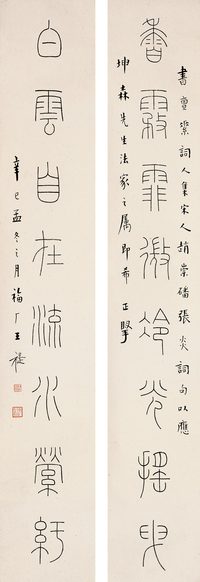 書亶詞人集宋人趙崇磻張炎詞句以應
香霧霏微冷光搖曳
坤森先生法家之属即希 正
白雲自在流水縈紆
辛巳孟冬之月福厂王禔